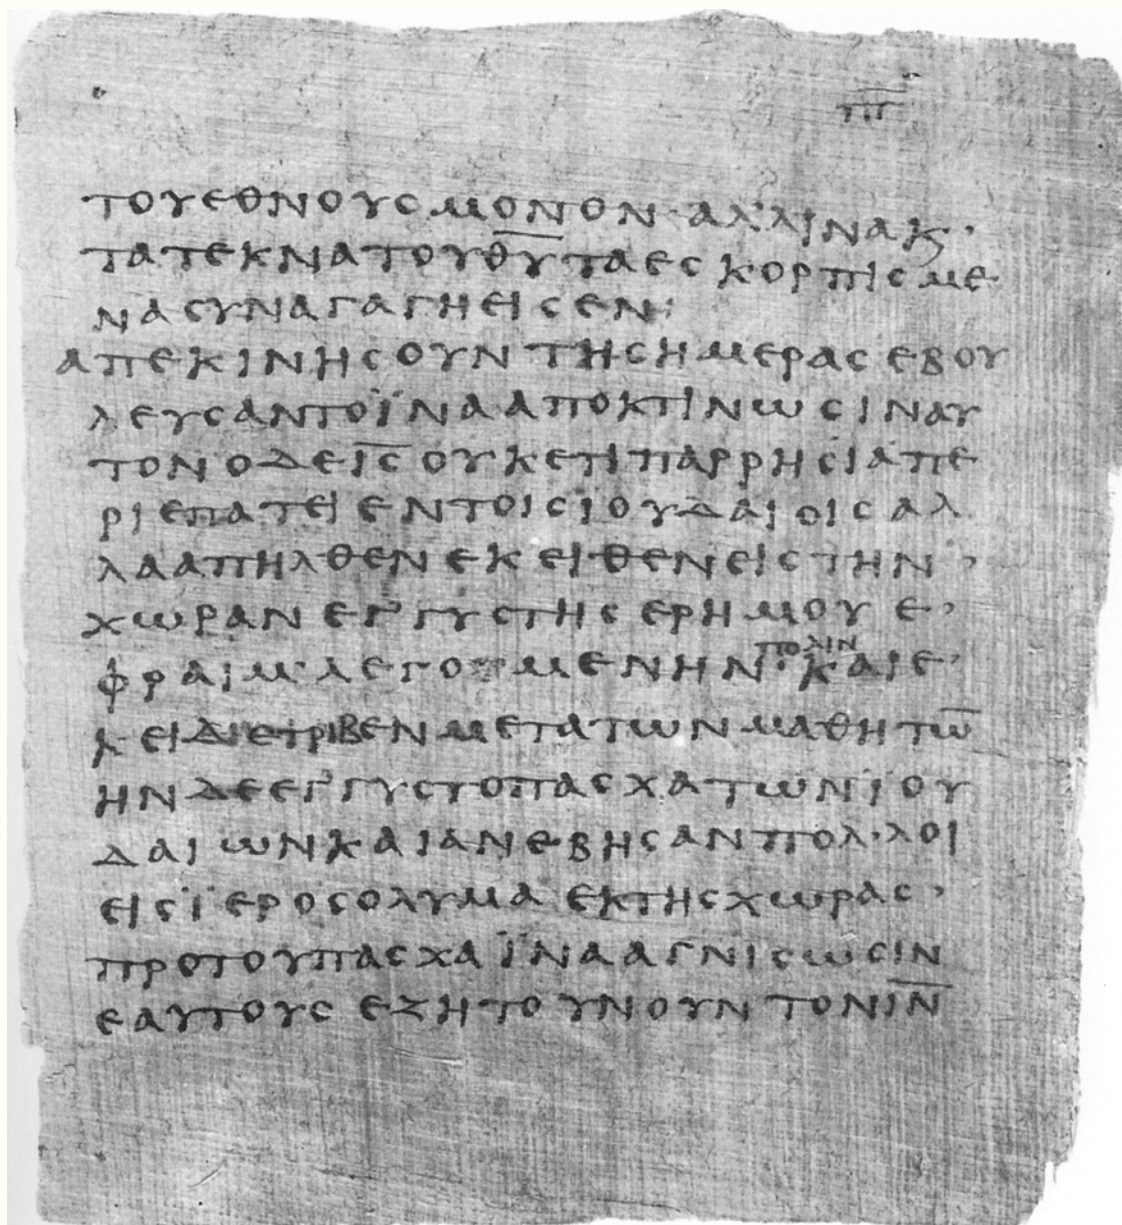 π̅π̅
ΤΟΥΕΘΝΟΥϹΜΟΝΟΝ·ΑΛ’ΛΙΝΑΚ’
ΤΑΤΕΚΝΑΤΟΥΘ̅Υ̅ΤΑΕϹΚΟΡΠΙϹΜΕ
ΝΑϹΥΝΑΓΑΓΗΕΙϹΕΝ·
ΑΠΕΚΙΝΗϹΟΥΝΤΗϹΗΜΕΡΑϹΕΒΟΥ
ΛΕΥϹΑΝΤΟΪΝΑΑΠΟΚΤΙΝΩϹΙΝΑΥ
ΤΟΝΟΔΕΙ̅Ϲ̅ΟΥΚΕΤΙΠΑΡΡΗϹΙΑΠΕ
ΡΙΕΠΑΤΕΙΕΝΤΟΙϹΙΟΥΔΑΙΟΙϹΑΛ
ΛΑΑΠΗΛΘΕΝΕΚΕΙΘΕΝΕΙϹΤΗΝ’
ΧΩΡΑΝΕΓ’ΓΥϹΤΗϹΕΡΗΜΟΥΕ’
ΦΡΑΙΜ’ΛΕΓΟΜΕΝΗΝ·ΠΟΛΙΝΚΑΙΕ’
ΚΕΙΔΙΕΤΡΙΒΕΝΜΕΤΑΤΩΝΜΑΘΗΤΩ̅
ΗΝΔΕΕΓ’ΓΥϹΤΟΠΑϹΧΑΤΩΝΪΟΥ
ΔΑΙΩΝΚΑΙΑΝΕΒΗϹΑΝΠΟΛ’ΛΟΙ
ΕΙϹΪΕΡΟϹΟΛΥΜΑΕΚΤΗϹΧΩΡΑϹ’
ΠΡΟΤΟΥΠΑϹΧΑΪΝΑΑΓΝΙϹΩϹΙΝ
ΕΑΥΤΟΥϹΕΖΗΤΟΥΝΟΥΝΤΟΝΙ̅Ν̅